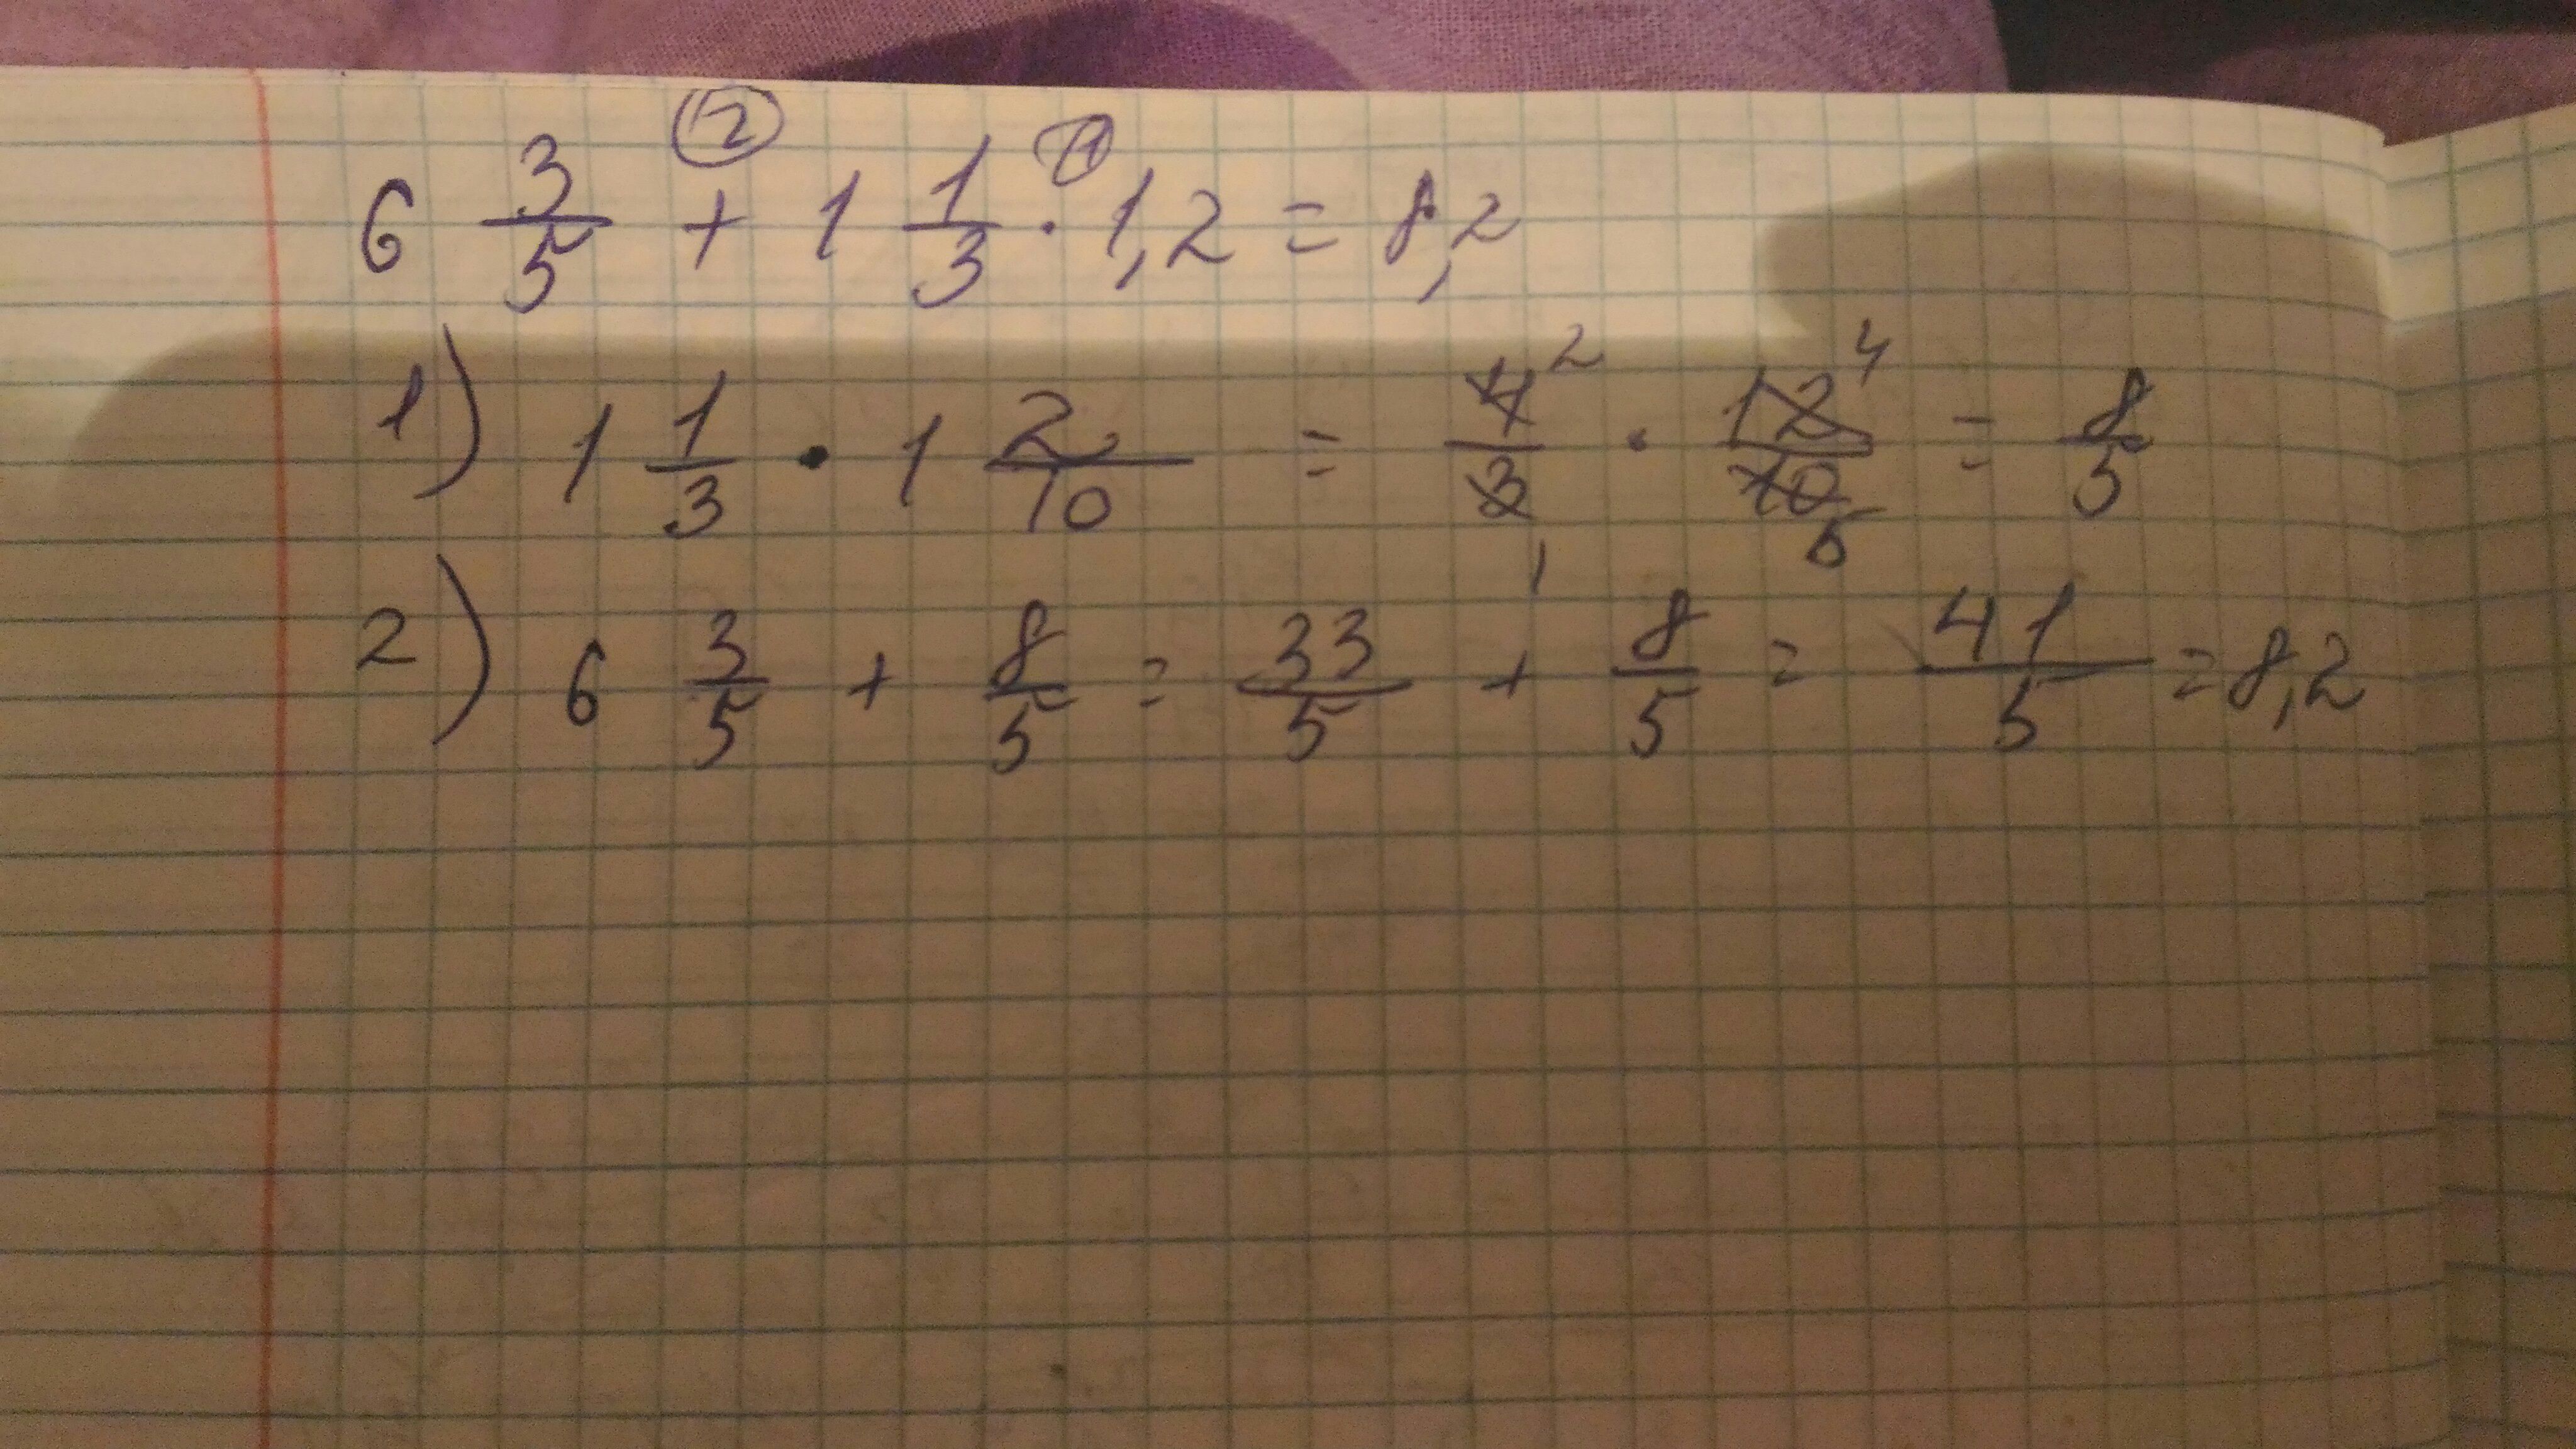 6 3/5 + 1 1/3 · 1,2 = 8,2
1) 1 1/3 · 1 2/10 = 4/3 · 12/10 = 8/5
2) 6 3/5 + 8/5 = 33/5 + 8/5 = 41/5 = 8,2